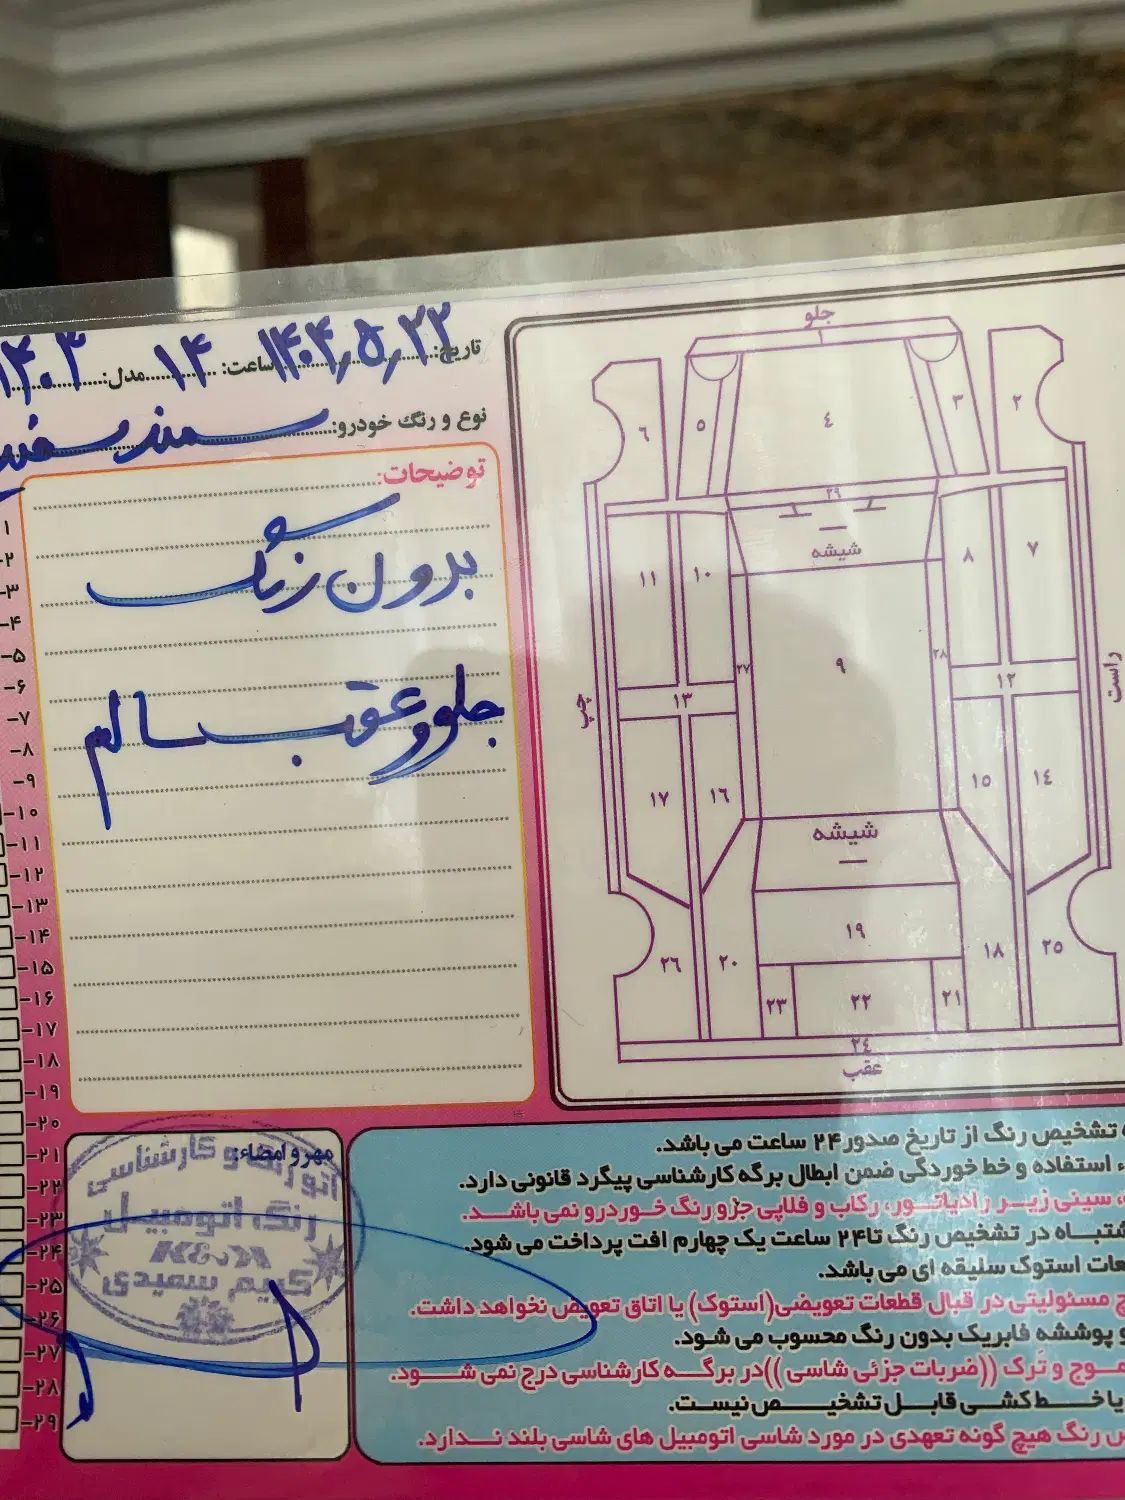 تاریخ: ۱۴۰۴٫۵٫۲۲ ساعت: ۱۴ مدل: ۱۴۰۳
نوع و رنگ خودرو: سمند سفید
توضیحات:
بدون رنگ
جلو و عقب سالم
جلو
۱
۲
۳
۴
۵
۶
۲۹
شیشه
۷
۸
۱۰
۱۱
راست
۲۸
۹
۲۷
چپ
۱۲
۱۳
۱۴
۱۵
۱۶
۱۷
شیشه
۱۹
۲۵
۱۸
۲۰
۲۶
۲۱
۲۲
۲۳
۲۴
عقب
۱
۲-
۳-
۴-
۵-
۶-
۷-
۸-
۹-
۱۰-
۱۱-
۱۲-
۱۳-
۱۴-
۱۵-
۱۶-
۱۷-
۱۸-
۱۹-
۲۰-
۲۱-
۲۲-
۲۳-
۲۴-
۲۵-
۲۶-
۲۷-
۲۸-
۲۹-
تشخیص رنگ از تاریخ صدور ۲۴ ساعت می باشد.
استفاده و خط خوردگی ضمن ابطال برگه کارشناسی پیگرد قانونی دارد.
سینی زیر رادیاتور، رکاب و فلاپی جزو رنگ خوردرو نمی باشد.
شتباه در تشخیص رنگ تا ۲۴ ساعت یک چهارم افت پرداخت می شود.
عات استوک سلیقه ای می باشد.
چ مسئولیتی در قبال قطعات تعویضی(استوک) یا اتاق تعویض نخواهد داشت.
و پوششه فابریک بدون رنگ محسوب می شود.
موج و تَرک ((ضربات جزئی شاسی ))در برگه کارشناسی درج نمی شود.
یا خط کشی قابل تشخیص نیست.
ص رنگ هیچ گونه تعهدی در مورد شاسی اتومبیل های شاسی بلند ندارد.
مهر و امضاء:
و کارشناسی
رنگ اتومبیل
کریم سمیدی